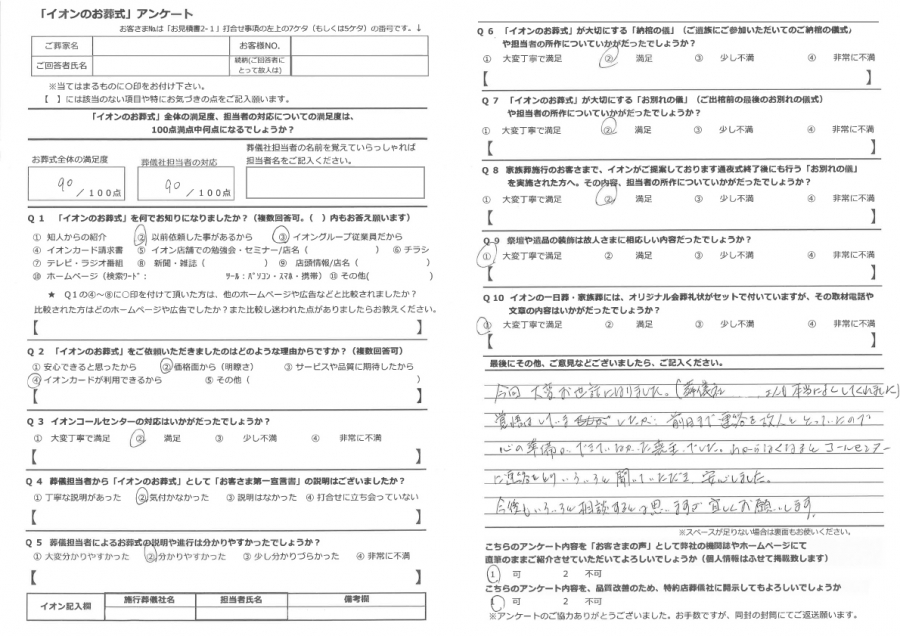 「イオンのお葬式」アンケート
お客さま№は「お見積書2-1」打合せ事項の左上の7ケタ（もしくは5ケタ）の番号です。↓
ご葬家名 お客様NO.
ご回答者氏名 続柄(ご回答者にとって故人は)
※当てはまるものに○印をお付け下さい。
【 】には該当のない項目や特にお気づきの点をご記入願います。
「イオンのお葬式」全体の満足度、担当者の対応についての満足度は、
100点満点中何点になるでしょうか？
お葬式全体の満足度 葬儀社担当者の対応 葬儀社担当者の名前を覚えていらっしゃれば
担当者名をご記入ください。
90 /100点 90 /100点
Q1 「イオンのお葬式」を何でお知りになりましたか？（複数回答可。（ ）内もお答え願います）
① 知人からの紹介 ② 以前依頼した事があるから ③ イオングループ従業員だから
④ イオンカード請求書 ⑤ イオン店舗での勉強会・セミナー/店名（ ） ⑥ チラシ
⑦ テレビ・ラジオ番組 ⑧ 新聞・雑誌（ ） ⑨ 店頭情報/店名（ ）
⑩ ホームページ（検索ﾜｰﾄﾞ： ﾂｰﾙ：ﾊﾟｿｺﾝ・ｽﾏﾎ・携帯） ⑪ その他( )
★ Q1の④～⑧に○印を付けて頂いた方は、他のホームページや広告などと比較されましたか？
比較された方はどのホームページや広告でしたか？また比較し迷われた点がありましたらお教えください。
【 】
Q2 「イオンのお葬式」をご依頼いただきましたのはどのような理由からですか？（複数回答可）
① 安心できると思ったから ② 価格面から（明瞭さ） ③ サービスや品質に期待したから
④ イオンカードが利用できるから ⑤ その他（ ）
【 】
Q3 イオンコールセンターの対応はいかがだったでしょうか？
① 大変丁寧で満足 ② 満足 ③ 少し不満 ④ 非常に不満
【 】
Q4 葬儀担当者から「イオンのお葬式」として「お客さま第一宣言書」の説明はございましたか？
① 丁寧な説明があった ② 気付かなかった ③ 説明はなかった ④ 打合せに立ち会っていない
【 】
Q5 葬儀担当者によるお葬式の説明や進行は分かりやすかったでしょうか？
① 大変分かりやすかった ② 分かりやすかった ③ 少し分かりづらかった ④ 非常に不満
【 】
イオン記入欄 施行葬儀社名 担当者氏名 備考欄
Q6 「イオンのお葬式」が大切にする「納棺の儀」（ご遺族にご参加いただいてのご納棺の儀式）
や担当者の所作についていかがだったでしょうか？
① 大変丁寧で満足 ② 満足 ③ 少し不満 ④ 非常に不満
【 】
Q7 「イオンのお葬式」が大切にする「お別れの儀」（ご出棺前の最後のお別れの儀式）
や担当者の所作についていかがだったでしょうか？
① 大変丁寧で満足 ② 満足 ③ 少し不満 ④ 非常に不満
【 】
Q8 家族葬施行のお客さまで、イオンがご提案しております通夜式終了後にも行う「お別れの儀」
を実施された方へ。その内容、担当者の所作についていかがだったでしょうか？
① 大変丁寧で満足 ② 満足 ③ 少し不満 ④ 非常に不満
【 】
Q9 祭壇や遺品の装飾は故人さまに相応しい内容だったでしょうか？
① 大変丁寧で満足 ② 満足 ③ 少し不満 ④ 非常に不満
【 】
Q10 イオンの一日葬・家族葬には、オリジナル会葬礼状がセットで付いていますが、その取材電話や
文章の内容はいかがだったでしょうか？
① 大変丁寧で満足 ② 満足 ③ 少し不満 ④ 非常に不満
【 】
最後にその他、ご意見などございましたら、ご記入ください。
今回 大変お世話になりました。（葬儀社 さん 本当によくしてくれました）
覚悟はしていましたが 前日まで連絡を故人ととっていたので
心の準備ができていなかった喪主でした。わからなくなると コールセンター
に連絡をとり いろいろと聞いていただき 安心しました。
今後もいろいろと相談すると思いますが宜しくお願いします。
※スペースが足りない場合は裏面もお使いください。
こちらのアンケート内容を「お客さまの声」として弊社の機関誌やホームページにて
直筆のままご紹介させていただいてよろしいでしょうか（個人情報はふせて掲載致します）
1 可 2 不可
こちらのアンケート内容を、品質改善のため、特約店葬儀社に開示してもよろしいでしょうか
1 可 2 不可
※アンケートのご協力ありがとうございました。お手数ですが、同封の封筒にてご返送願います。